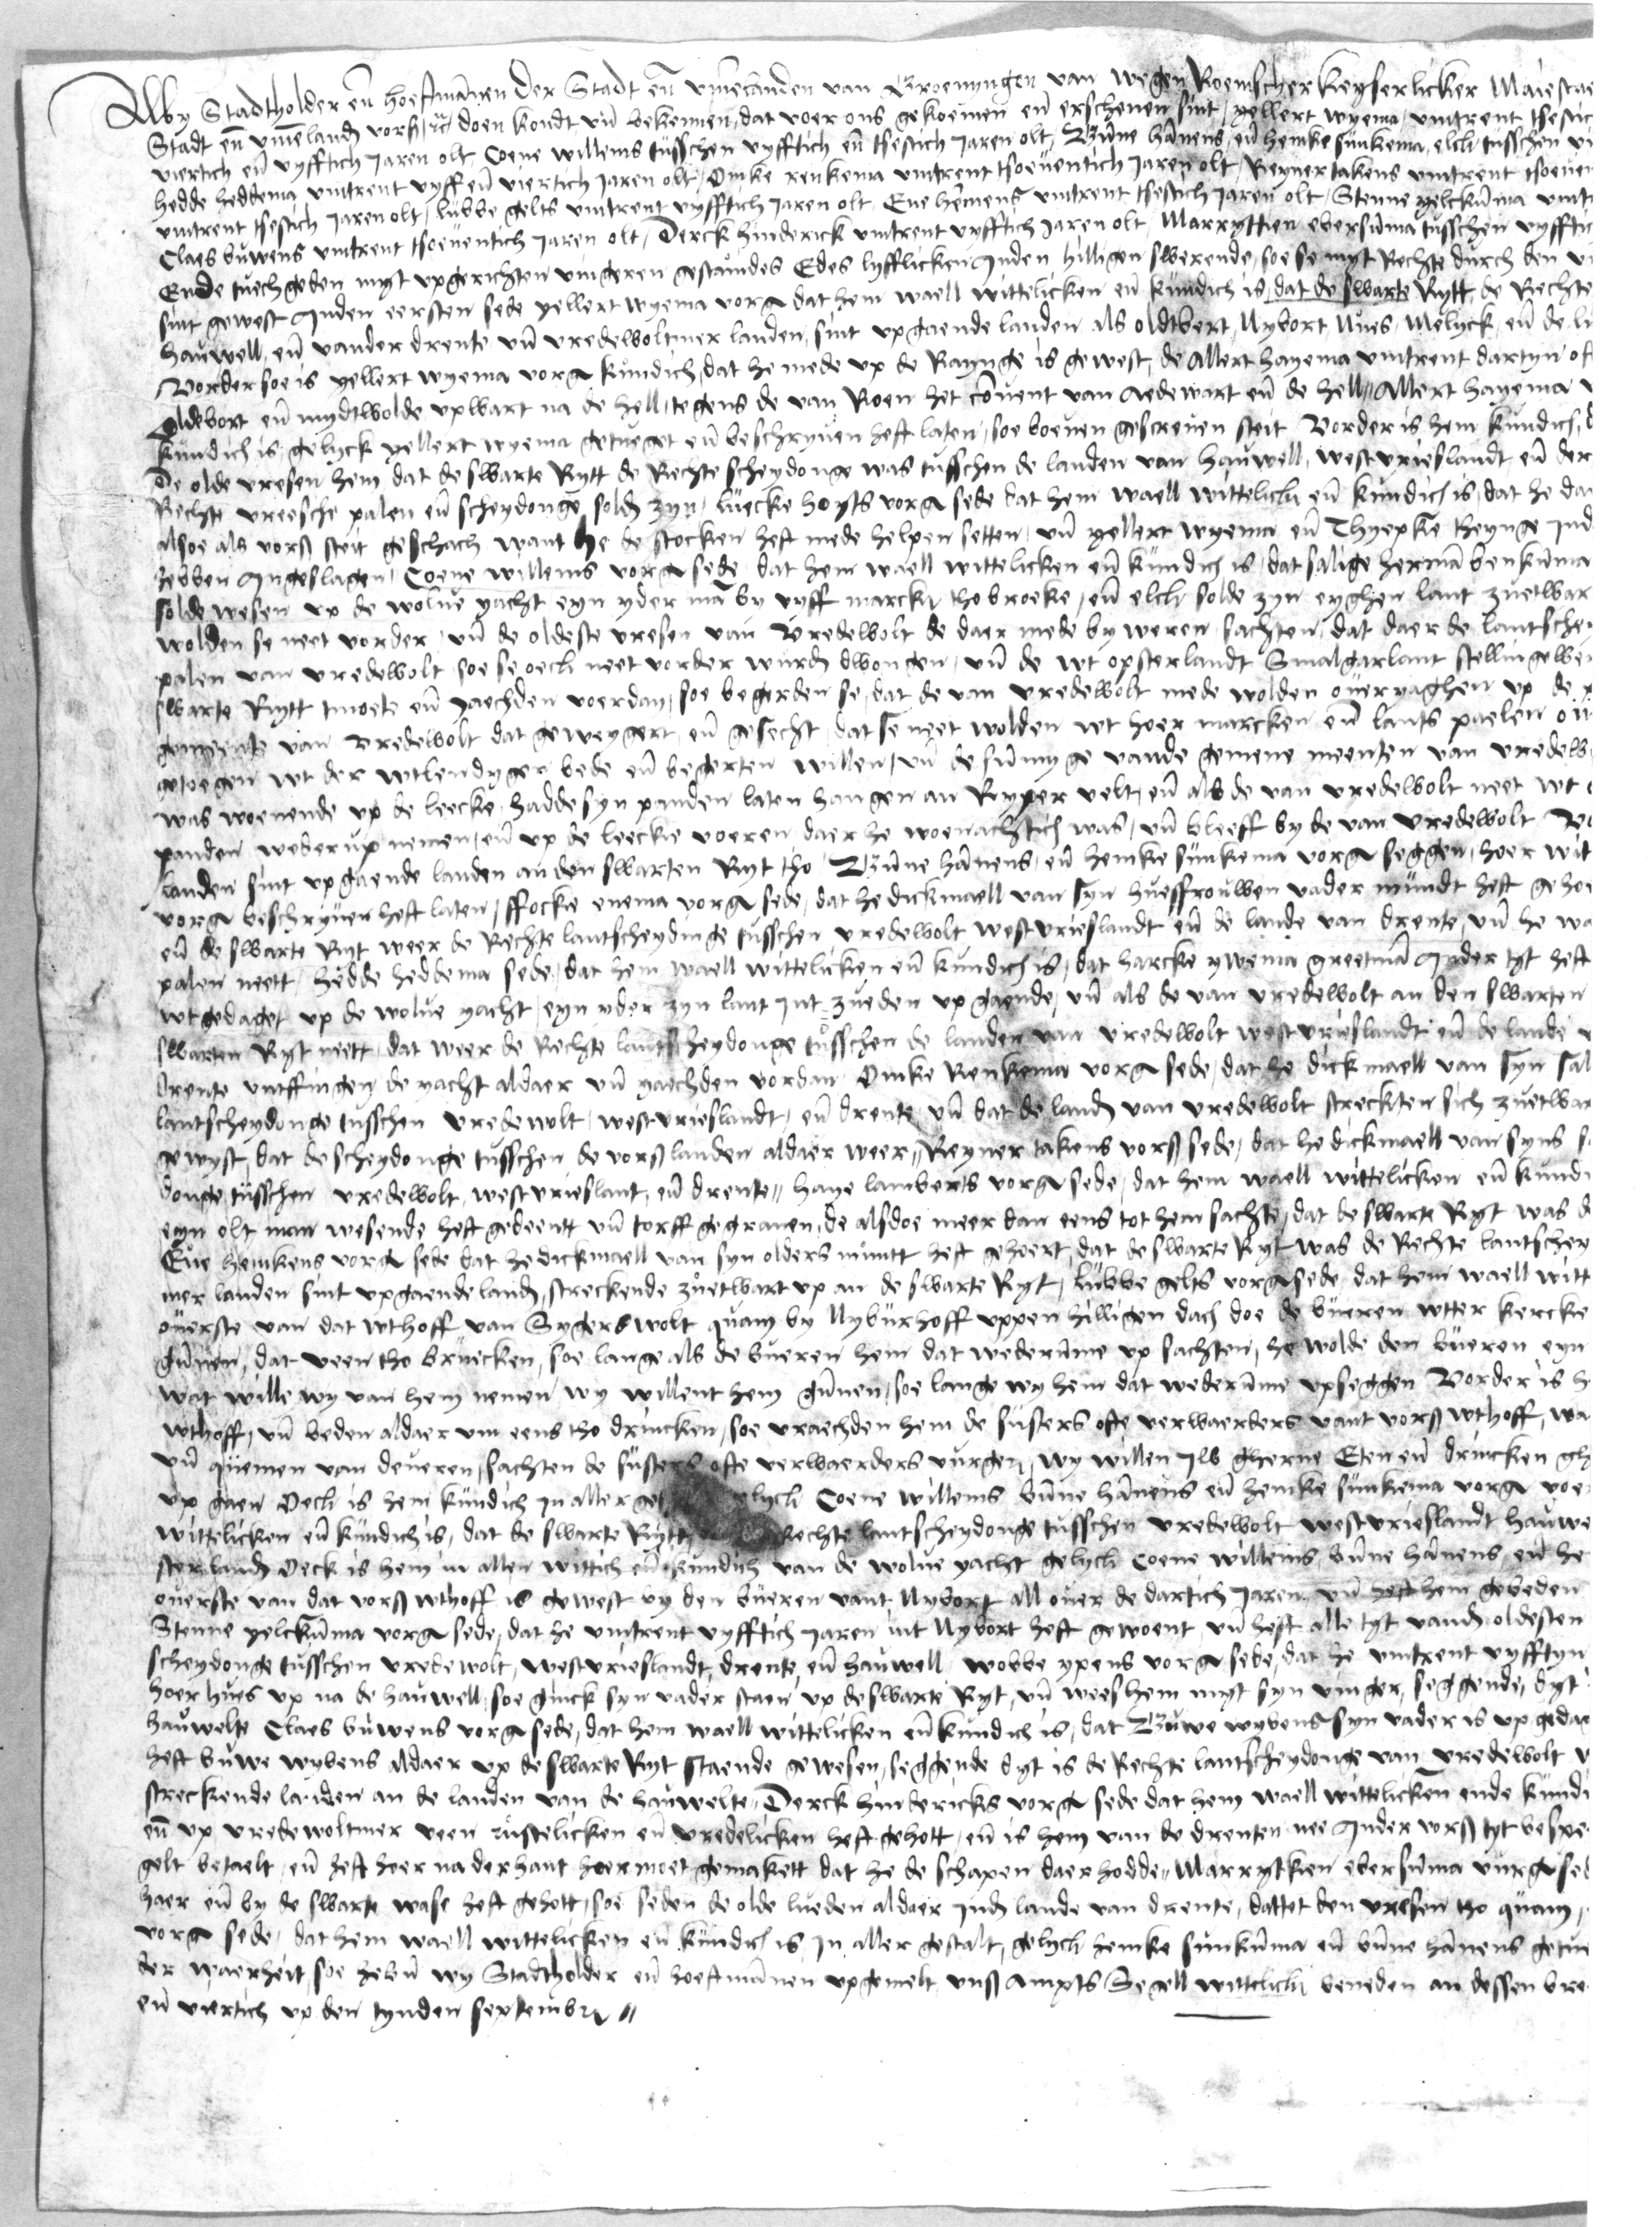 Wy Stadtholder en̄ Hoeftmannen der Stadt en̄ Vmelanden van Groenyngen van wegen Roemscher Keyserlicker Maiestae
Stadt en̄ vmelandn̄ vorsz doen kondt vn̄ bekennen, dat voer ons gekoemen en̄ erschenen sint, yellert wyema, vmtrent tsestic
viertich en̄ vyfftich Jaren olt, Coene willems tusschen vyfftich en̄ tsestich Jaren olt, Bunne hānens, en̄ hemke sunkema, elck tusschen vi
hedde heddema vmtrent vyff en̄ viertich Jaren olt, Omke renkema vmtrent tsoeuentich Jaren olt, Reyner takens vmtrent tsoeuen
vmtrent tsestich Jaren olt, lubbe gelts vmtrent vyfftich Jaren olt, Eue hemens vmtrent tsestich Jaren olt, Stenne yelckuma vmtr
Claes buwens vmtrent tsoeuentich Jaren olt, Derck hinderick vmtrent vyfftich Jaren olt, Marryttien ebersuma tusschen vyfftic
Ende tuech geden myt vpgerichten vingeren gestaeudes Edes lyfflicken Inden hilligen swerende, soe se myt Rechte durch den vi
sint gewest Inden eersten sede yellert wyema vorg dat hem waell wittelicken en̄ kundich is, dat de swarte Rytt, de Rechte
hauwell, en̄ vander drente vn̄ vredewoltmer landen, sint vpgaende landen als oldebert, Nybort Nues, Melyck, en̄ de li
Vorder soe is yellert wyema vorg kundich, dat he mede vp de Raynge is gewest, de Allert hayema vmtrent dartyn of
Oldebort en̄ mydtwolde vpwart na de hell, tegens de van Roen het Couent van Aedewart en̄ de hell, Allert hayema v
kundich is, gelyck yellert wyema getueget en̄ beschryuen heft laten, soe boeuen gescreuen steit Vorder is hem kundich, d
De olde vresen hem dat de swarte Rytt de Rechte scheydonge was tusschen de landen van hauwell, westvrieslandt en̄ der
Rechte vreesche palen en̄ scheydonge, soldn̄ zyn, luecke hoyts vorg sede dat hem waell wittelick en̄ kundich is, dat he dae
alsoe als vorsz steit geschach want he de stocken heft mede helpen setten, vn̄ yellert wyema en̄ Thyepke theynge ind
hebben Ingeslagen, Coene willems vorg sede, dat hem waell wittelicken en̄ kundich is, dat salige herman benkuma
solde wesen vp de wolue yacht eyn yder man by vyff marck tho broeke, en̄ elck solde zyn eyghen lant zuetwar
wolden se neet vorder, vn̄ de oldeste vresen van Vredewolt de daer mede by weren sachten, dat daer de lantschey
palen van vredewolt, soe se oeck neet vorder wurdn̄ dwongen, vn̄ de wt opsterlandt Smalgarlant stellingewer
swarte Rytt tmoete en̄ yaechden voerdan, soe begerden se, dat de van vredewolt mede wolden ouer yaghen vp de
gemeente van Vredewolt dat geweygert, en̄ gesecht, dat se neet wolden wt hoer marcken en̄ lants paelen ou
getoegen wt der wtlendyger bede en̄ begerten willen, vn̄ de summyge vande gemene meenten van vredew
was woenende vp de leecke, hadde syn panden laten hangen an Ryper velt, en̄ als de van vredewolt neet wt
panden wederup nemen, en̄ vp de leecke voeren, daer he woenachtich was, vn̄ bleeff by de van Vredewolt Vo
landen sint vpgaende landen an den swarten Ryt tho, Bunne hānens, en̄ hemke sunkema vorg seggen, hoer wit
vorg beschryuen heft laten, ffocke enema vorg sede, dat he dickmaell van syn huesfrouwen vader mundt heft gehoe
en̄ de swarte Ryt weer de Rechte lantscheydinge tusschen vredewolt westvrieslandt en̄ de lande van drente, vn̄ he wa
palen neett, hedde heddema sede, dat hem waell wittelicken en̄ kundich is, dat harcke ywema greetman Inder tyt heft
wtgedaget vp de wolue yacht, eyn yder zyn lant int zueden vp gaende, vn̄ als de van vredewolt an den swarten
swarten Ryt neett, dat weer de Rechte lantscheydonge tusschen de landen van vredewolt westvrieslandt en̄ de lande v
Drente vntffingen de yacht aldaer vn̄ yaechden vordan Omke Renkema vorg sede, dat he dickmaell van syn sal
lantscheydonge tusschen vredewolt, westvrieslandt, en̄ drente, vn̄ dat de landn̄ van vredewolt streckten sich zuetwar
gewyst, dat de scheydonge tusschen de vorsz landen aldaer weer, Reyner takens vorsz sede, dat he dickmaell van syns s
donge tusschen vredewolt, westvrieslant, en̄ drente, haye lamberts vorg sede, dat hem waell wittelicken en̄ kundi
eyn olt man wesende heft gedeentt vn̄ torff gegrauen, de alsdoe meer dan eens tot hem sachte, dat de swarte Ryt was d
Eue hemkens vorg sede dat he dickmaell van syn olders muntt heft gehoert, dat de swarte Ryt was de Rechte lantschey
mer landen sint vpgaende landn̄, streckende zuetwart vp an de swarte Ryt, Lubbe gelts vorg sede, dat hem waell witt
ouerste van dat wthoff van Sygerswolt quam by Nyburhoff vppen hilligen dach doe de bueren wtter kercke
gunnen, dat veen tho bruecken, soe lange als de bueren hem dat wederumme vp sachten, he wolde den bueren eyn
wat wille wy van hem nemen wy willent hem gunnen, soe lange wy hem dat wederumme vpseggen Vorder is h
wthoff, vn̄ beden aldaer vm eens tho drincken, soe vraechden hem de susters ofte verwaerders vant vorsz wthoff, wa
vn̄ quemen van deueren, sachten de susters ofte verwaerders vurgen, wy willen Jw gherne Eten en̄ drincken gh
vp gaen Oeck is hem kundich in aller ge elyck Coene willems bunne hānens en̄ hemke sunkema vorg voer
wittelicken en̄ kundich is, dat de swarte Rytt Rechte lantscheydonge tusschen vredewolt westvrieslandt hauwe
sterlandn̄ Oeck is hem in allen wittich en̄ kundich van de wolue yacht gelyck Coene willems, bunne hānens, en̄ he
ouerste van dat vorsz wthoff is gewest by den bueren vant Nybort all ouer de dartich Jaren vn̄ heft hem gebeden
Stenne yelckuma vorg sede, dat he vmtrent vyfftich Jaren int Nybort heft gewoent, vn̄ heft alle tyt vandn̄ oldesten
scheydonge tusschen vredewolt, westvrieslandt, drente, en̄ hauwell wobbe ypens vorg sede, dat he vmtrent vyfftyn
hoer hues vp na de hauwell, soe ginck syn vader staen vp de swarte Ryt, vn̄ wees hem myt syn vinger, seggende, dyt
hauwelte Claes buwens vorg sede, dat hem waell wittelicken en̄ kundich is, dat Buwe wybens syn vader is vp gedae
heft buwe wybens aldaer vp de swarte Ryt staende gewesen, seggende dyt is de Rechte lantscheydonge van vredewolt
streckende landen an de landen van de hauwelte, Derck hindericks vorg sede dat hem waell wittelicken ende kundi
en̄ vp vredewoltmer veen rustelicken en̄ vredelicken heft gehott, en̄ is hem van de drenten nee Inder vorsz tyt bespe
gelt betaelt, en̄ heft hoer na der hant hoer moet gemakett dat he de schapen daer hodde, Marrytkien ebersuma vurg sed
haer en̄ by de swarte wase heft gehott, soe seden de olde lueden aldaer indn̄ lande van drente, dattet den vresen tho quam,
vorg sede, dat hem waell wittelicken en̄ kundich is, in aller gestalt, gelyck hemke sunkuma en̄ bunne hānens getue
der waerheit, soe hebn̄ wy Stadtholder en̄ hoeftmannen vpgemelt vnsz ampts Segell wittelick beneden an dessen bre
en̄ viertich vp den tynden septembr